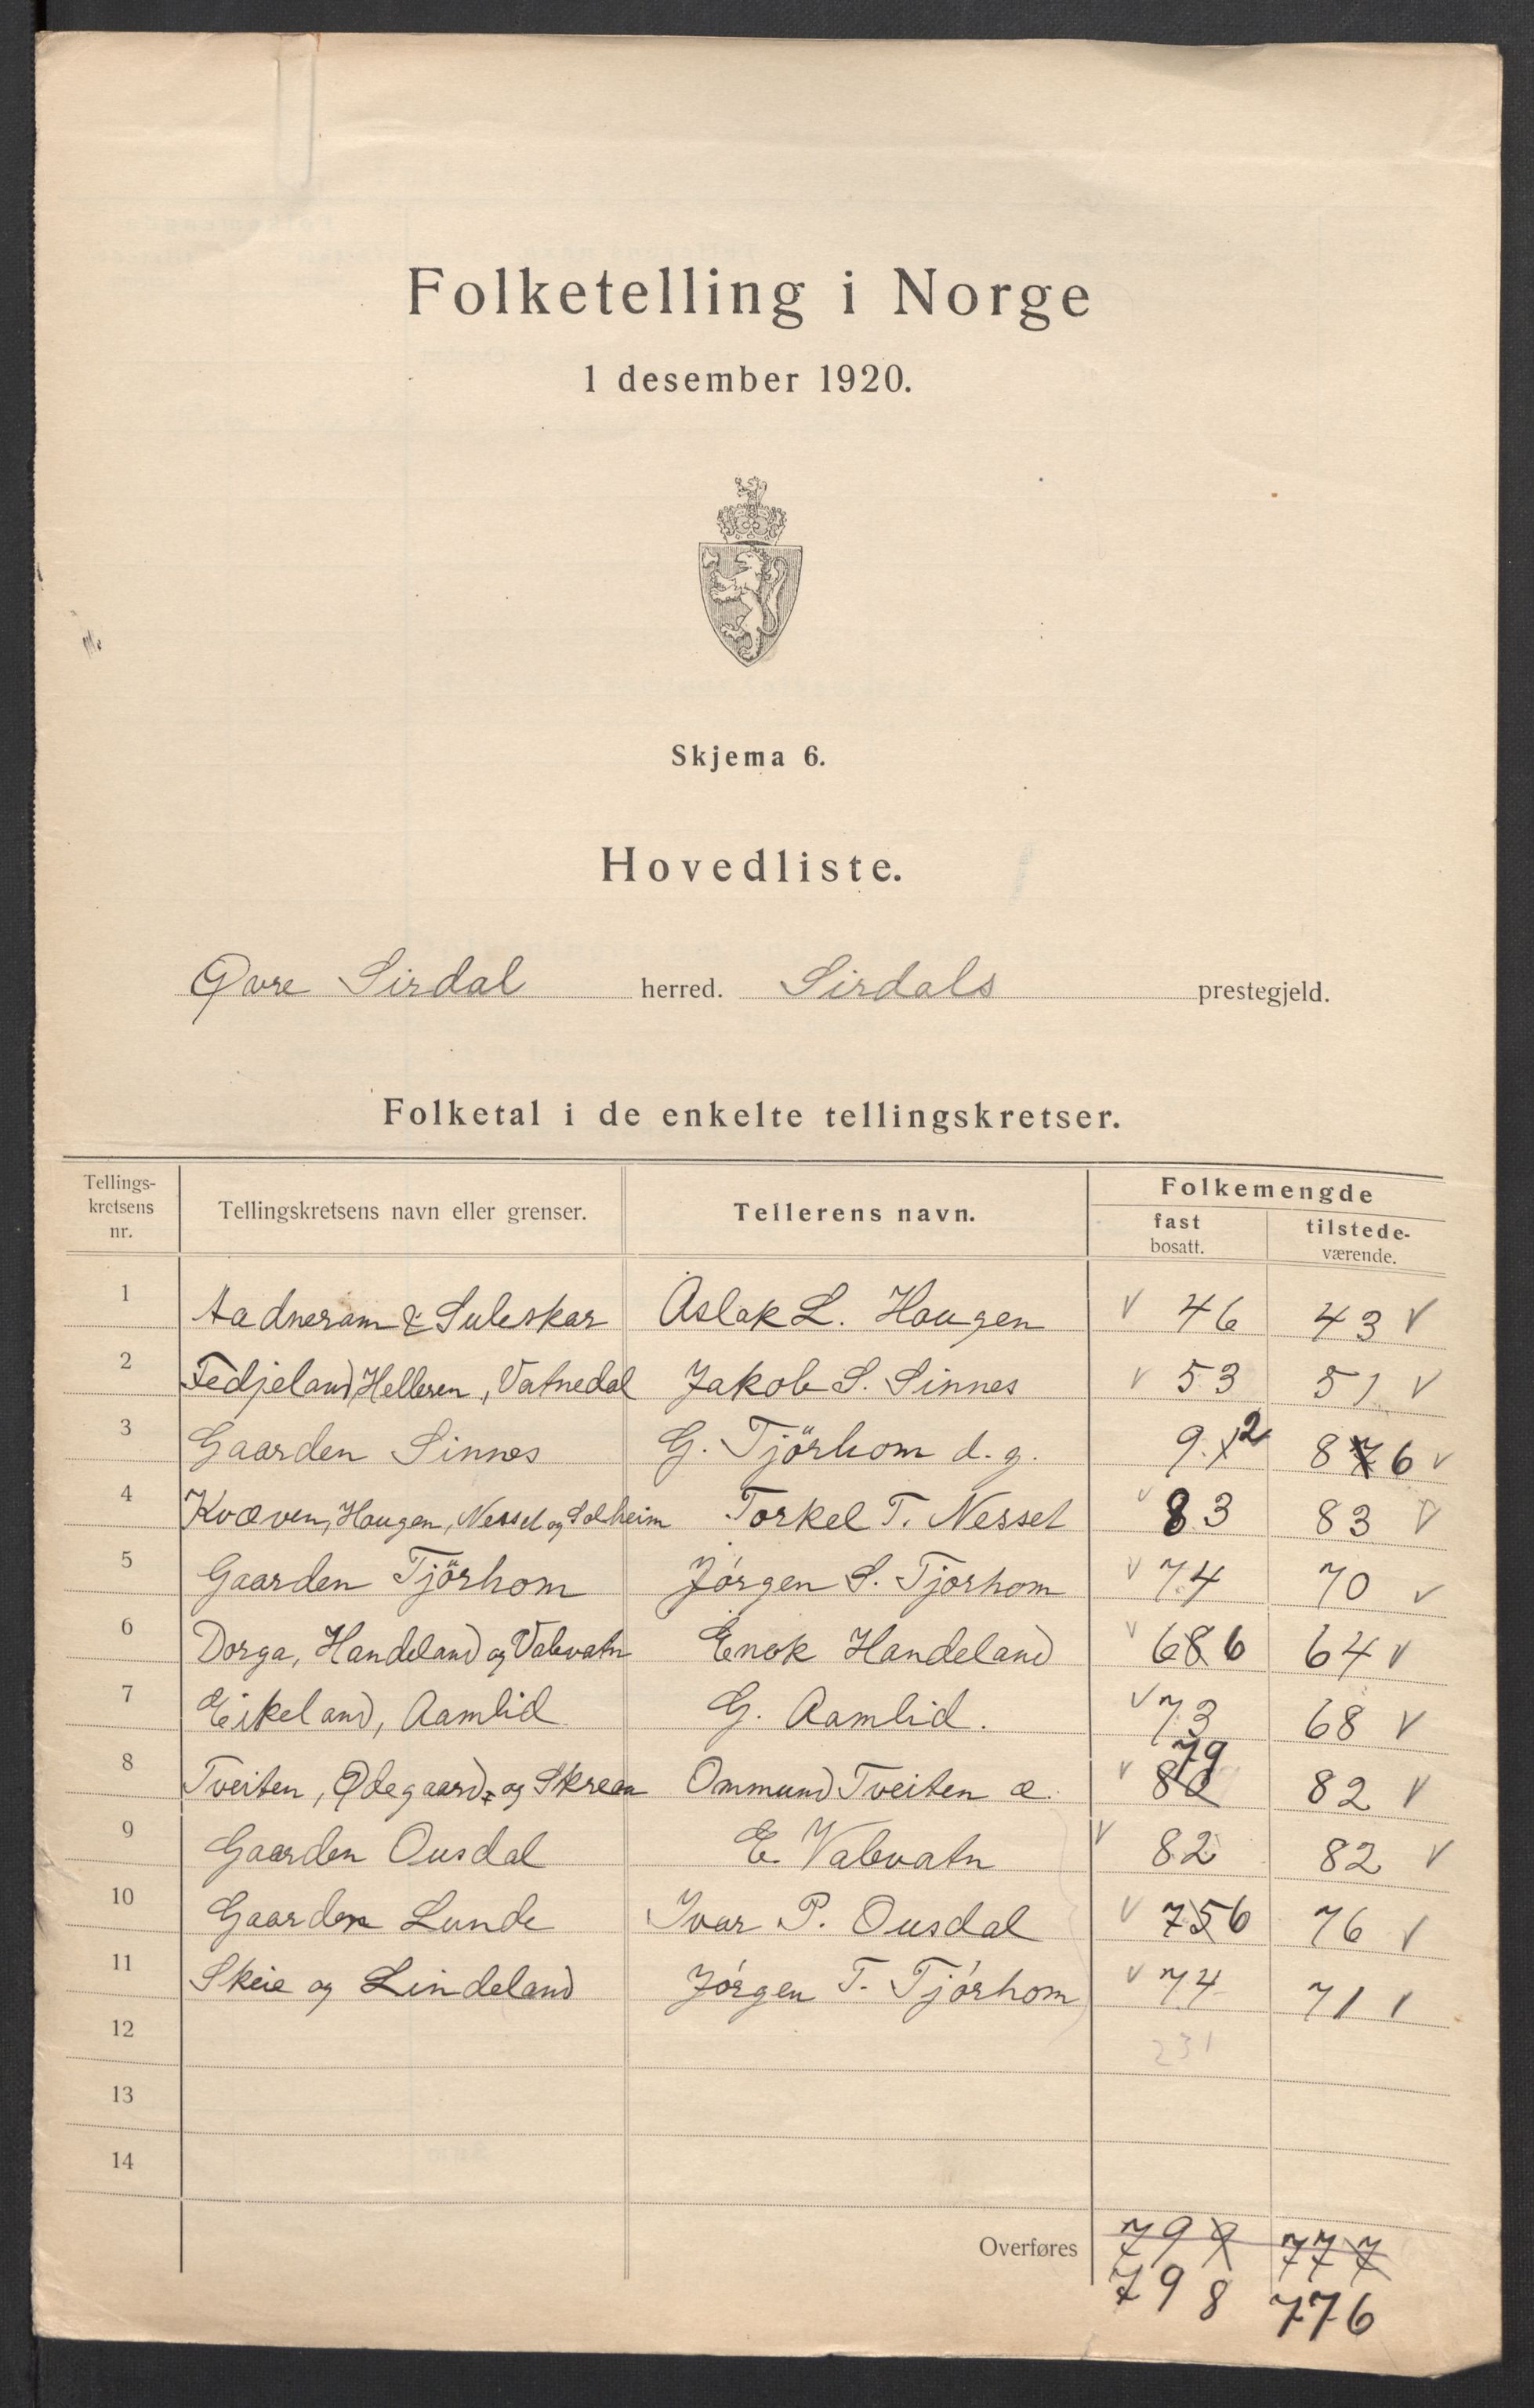 Folketelling i Norge
1 desember 1920.
Skjema 6.
Hovedliste.
Øvre Sirdal herred. Sirdals prestegjeld.
Folketal i de enkelte tellingskretser.
Tellings-kretsens nr. Tellingskretsens navn eller grenser. Tellerens navn. Folkemengde fast bosatt. tilstede-værende.
1 Aadneram & Suleskar Aslak L. Haugen V 46 43 V
2 Fedjeland, Helleren, Vatnedal Jakob S. Sinnes V 53 51 V
3 Gaarden Sinnes G. Tjörhom d. y. 912 876 V
4 Kvæven, Haugen, Nesset og Solheim Torkel T. Nesset V 83 83 V
5 Gaarden Tjörhom Jørgen S. Tjorhom V 74 70 V
6 Dorga, Handeland og Valevatn Enok Handeland V 686 64 V
7 Eikeland, Aamlid G. Aamlid. V 73 68 V
8 Tveiten, Ødegaard og Skreaa Ommund Tveiten æ. V 79 82 V
9 Gaarden Ousdal E. Valevatn V 82 82 V
10 Gaarden Lunde Ivar P. Ousdal V 756 76 V
11 Skeie og Lindeland Jørgen T. Tjórhom V 74 71 V
12 231
13
14
Overføres 799 777
798 776